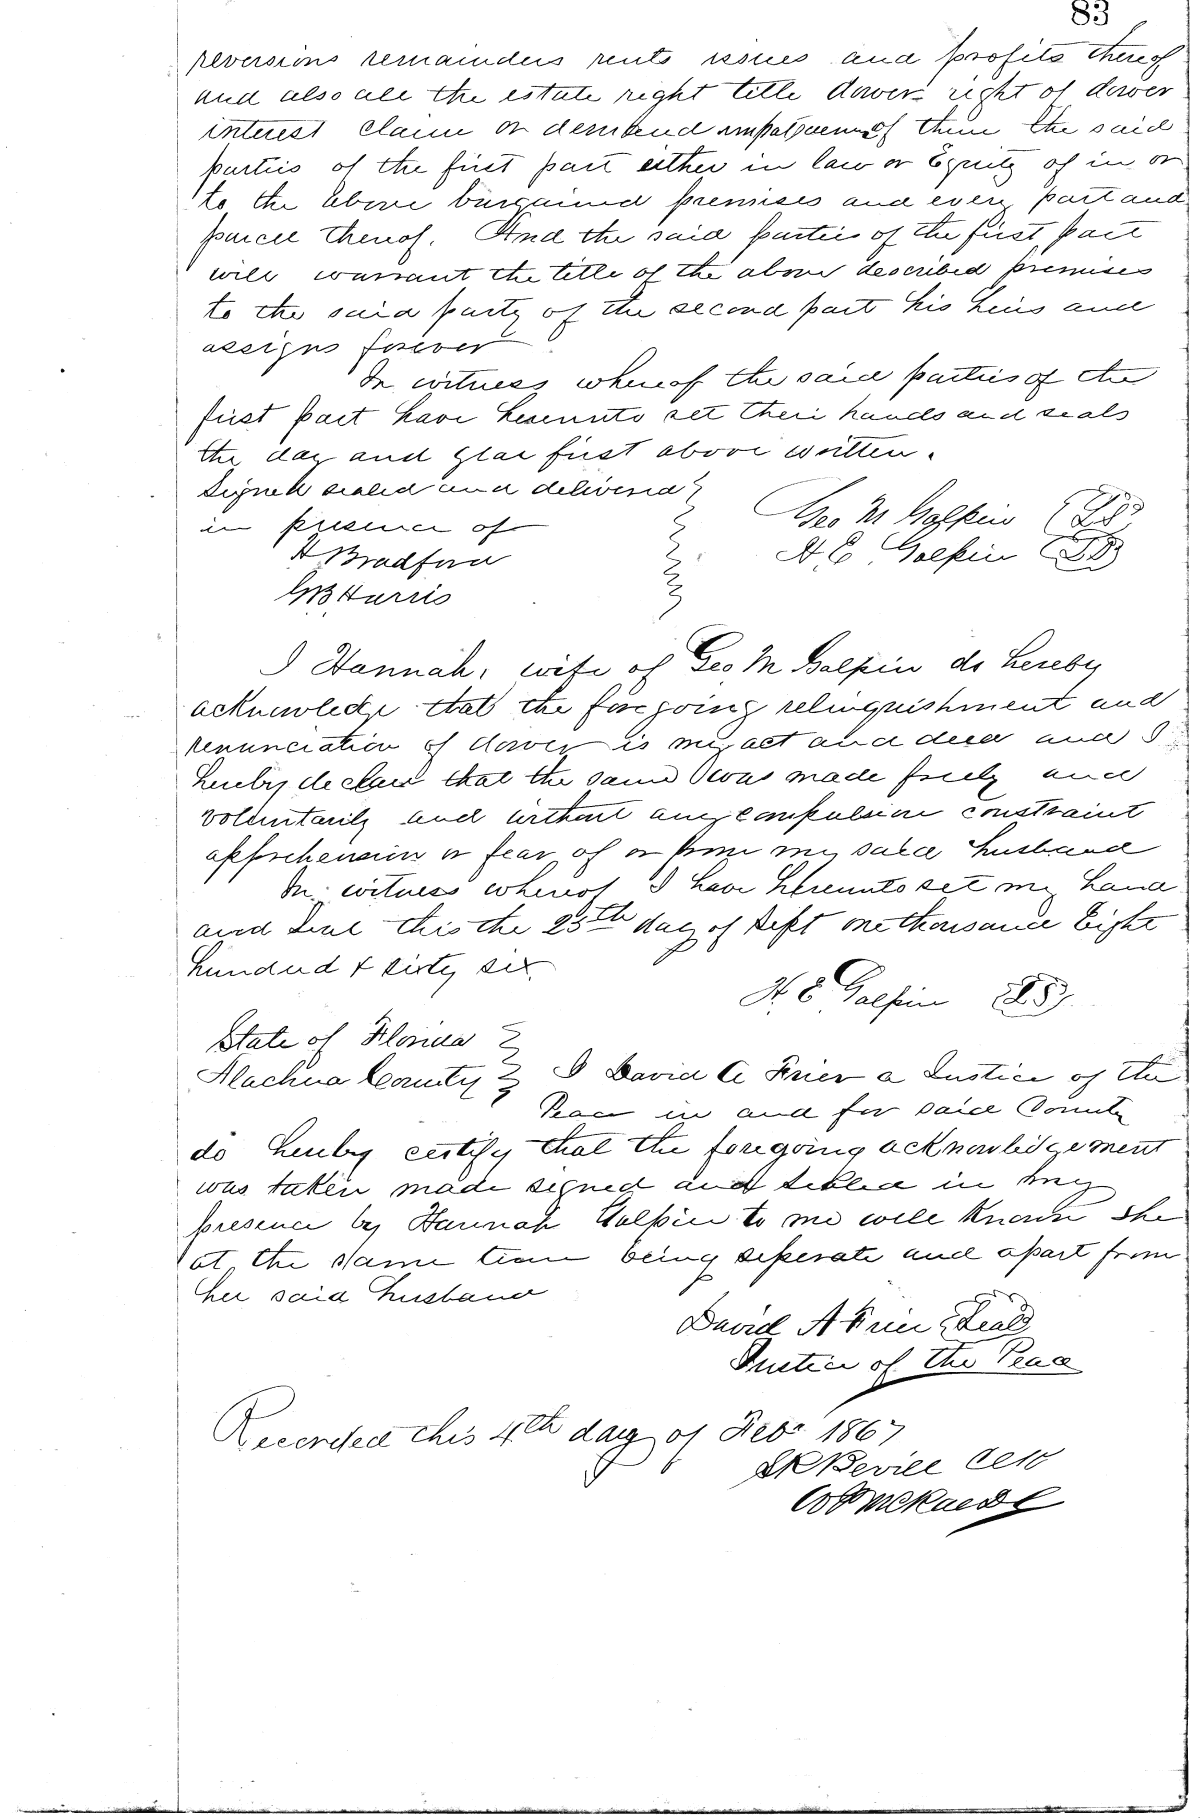 83
reversions remainders rents issues and profits thereof
and also all the estate right title dower right of dower
interest claim or demand of them the said
parties of the first part either in law or Equity of in or
to the above bargained premises and every part and
parcel thereof. And the said parties of the first part
will warrant the title of the above described premises
to the said party of the second part his heirs and
assigns forever
In witness whereof the said parties of the
first part have hereunto set their hands and seals
the day and year first above written.
Signed sealed and delivered
in presence of
Geo M Galpin LS
H Bradford
H. E. Galpin LS
Harris
I Hannah, wife of Geo M Galpin do hereby
acknowledge that the foregoing relinquishment and
renunciation of dower is my act and deed and I
hereby declare that the same was made freely and
voluntarily and without any compulsion constraint
apprehension or fear of or from my said husband
In witness whereof I have hereunto set my hand
and Seal this the 25th day of Sept one thousand Eight
hundred & sixty six
H. E Galpin LS
State of Florida
Alachua County I David A Frier a Justice of the
Peace in and for said County
do hereby certify that the foregoing acknowledgement
was taken made signed and sealed in my
presence by Hannah Galpin to me well known she
at the same time being seperate and apart from
her said husband
David A Frier Seal
Justice of the Peace
Recorded this 4th day of Feby 1867
Bevill Clk